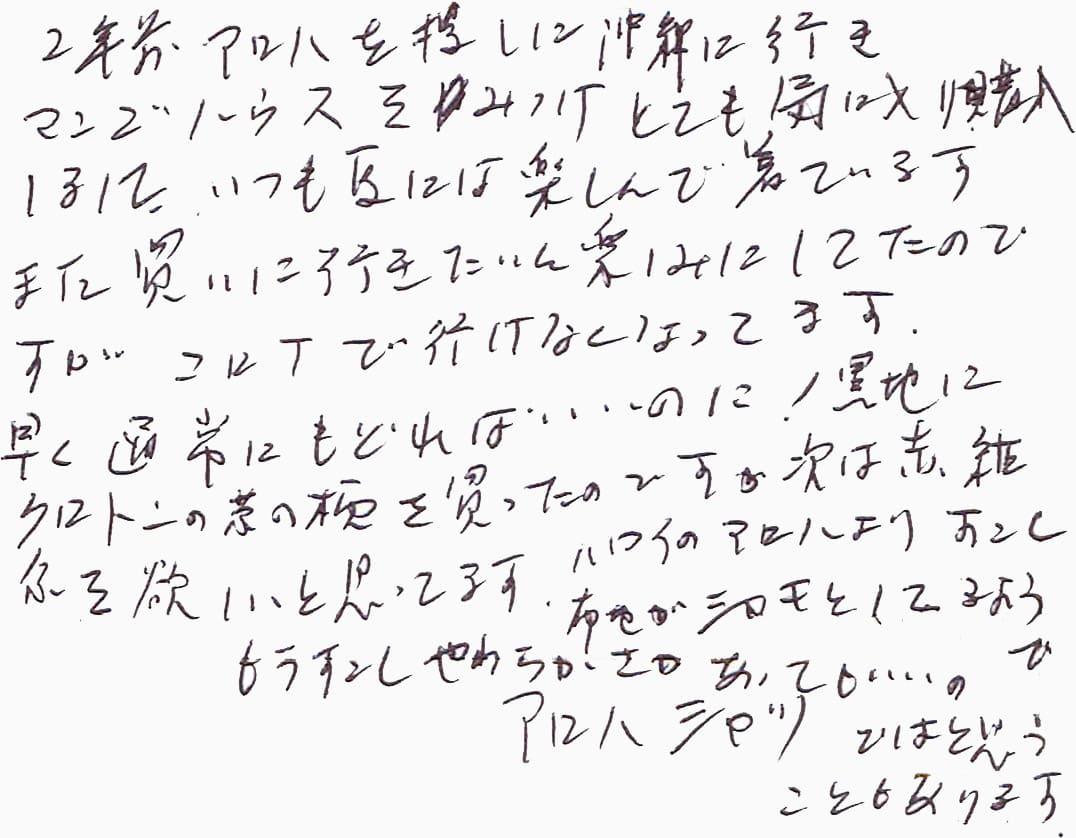 2年前 アロハを探しに沖縄に行き
マンゴハウスをみつけとても気に入り購入
しまして、いつも夏には楽しんで着ています
また買いに行きたいと楽しみにしてたので
すが コロナで行けなくなってます.
早く通常にもどればいいのに!黒地に
クロトンの葉の柄を買ったのですが次は赤、紺
系を欲しいと思ってます.
ハワイのアロハよりすこし
布地がシロモとしてるようで
もうすこしやわらかさがあってもいいの
ではと思う
アロハシャツ
こともあります.